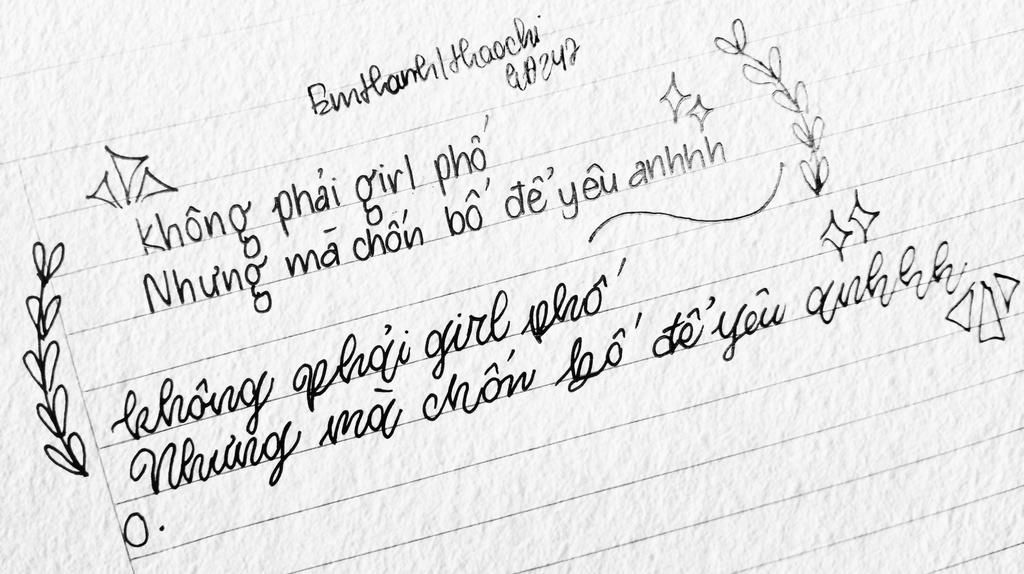 Emthanh/thaochi
GA247
Không phải girl phố
Nhưng mà chốn bố để yêu anhhh
không phải girl phố
Nhưng mà chốn bố để yêu anhhh
O.